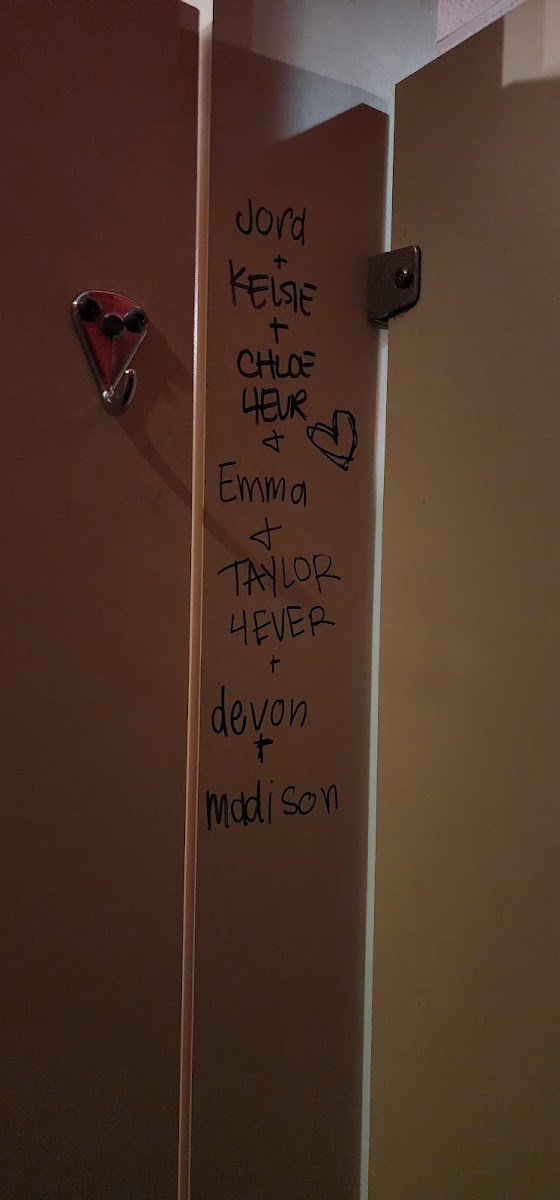 Jord
+
KELSIE
+
CHLOE
4EVR
+
Emma
+
TAYLOR
4EVER
+
devon
+
madison